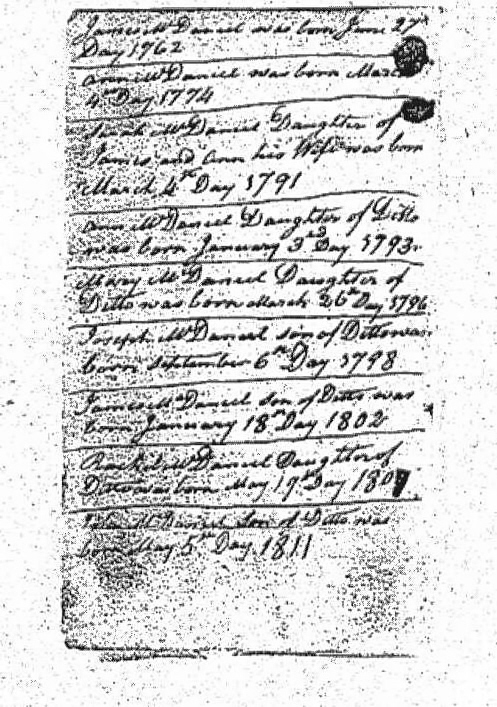 James McDaniel was born June 27th
Day 1762
Ann McDaniel was born March
4th Day 1774
Sarah McDaniel Daughter of
James and Ann his Wife was born
March 4th Day 1791
Ann McDaniel Daughter of Ditto
was born January 3rd Day 1793
Mary McDaniel Daughter of
Ditto was born March 26th Day 1796
Joseph McDaniel son of Ditto was
born September 6th Day 1798
James McDaniel son of Ditto was
born January 18th Day 1802
Rachel McDaniel Daughter of
Ditto was born May 19th Day
McDaniel Son of Ditto was
born May 5th Day 1811